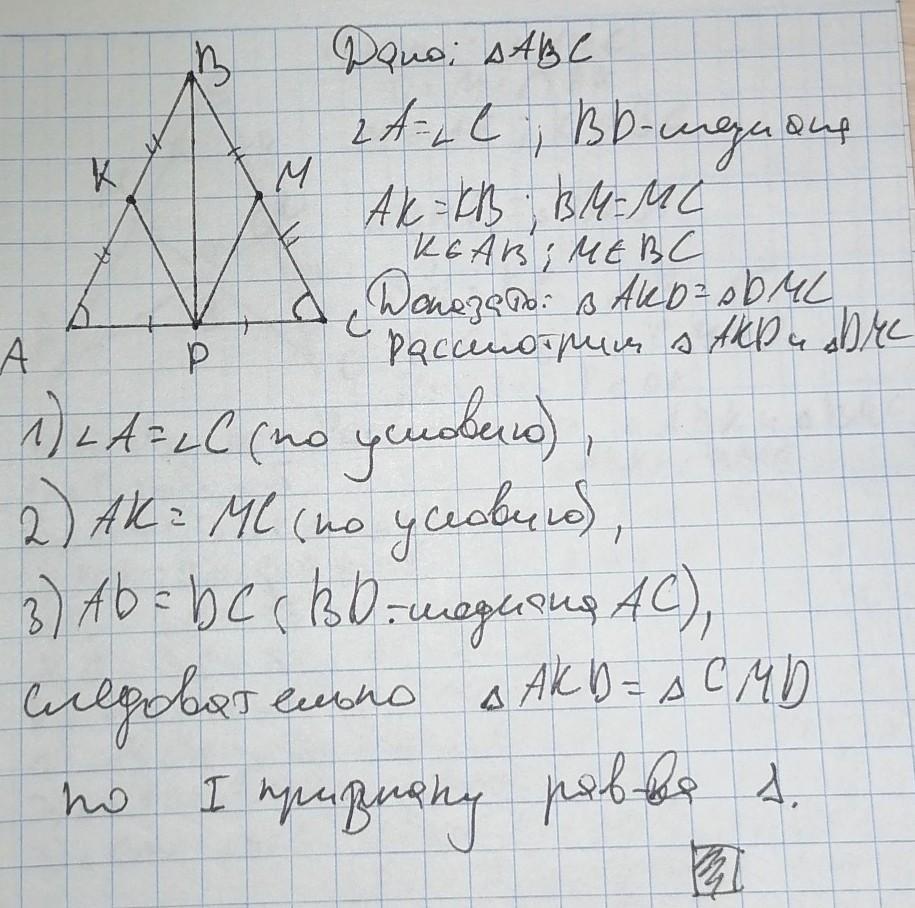 B
Дано: △ABC
∠A=∠C ; BD-медиана
K
M
AK=KB ; BM=MC
K∈AB ; M∈BC
Доказать: △AKD=△DMC
A
P
C
Рассмотрим △AKD и △DMC
1) ∠A=∠C (по условию),
2) AK = MC (по условию),
3) AD = DC (BD-медиана AC),
следовательно △AKD = △CMD
по I признаку рав-ва △.